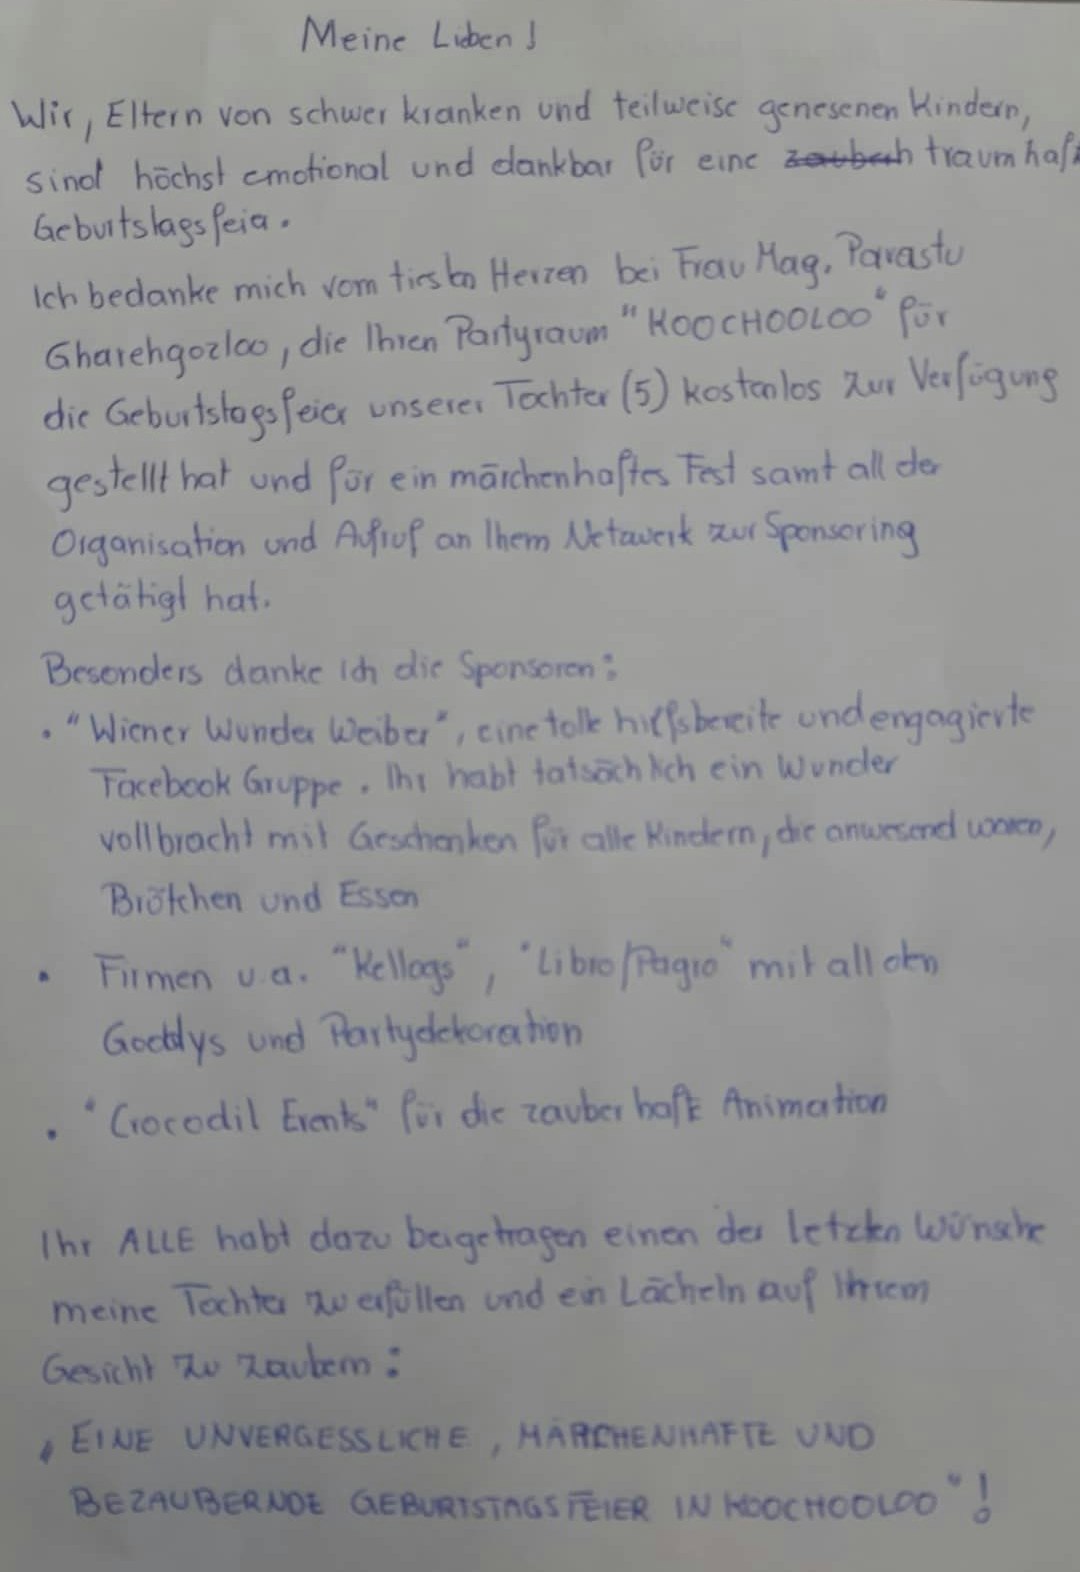 Meine Lieben!
Wir, Eltern von schwer kranken und teilweise genesenen Kindern,
sind höchst emotional und dankbar für eine traumhaft
Geburtstagsfeia.
Ich bedanke mich vom tiesten Herzen bei Frau Mag. Parastu
Gharehgozloo, die Ihren Partyraum "KOOCHOOLOO" für
die Geburtstagsfeier unserer Tochter (5) kostenlos zur Verfügung
gestellt hat und für ein märchenhaftes Fest samt all der
Organisation und Aufruf an Ihem Netzwerk zur Sponsoring
getätigt hat.
Besonders danke ich die Sponsoren:
• "Wiener Wunder Weiber", eine tolle hilfsbereite und engagierte
Facebook Gruppe. Ihr habt tatsächlich ein Wunder
vollbracht mit Geschenken für alle Kindern, die anwesend waren,
Brötchen und Essen
• Firmen u.a. "Kellogs", "Libro/Pagro" mit all den
Goodys und Partydekoration
• "Crocodil Events" für die zauberhafte Animation
Ihr ALLE habt dazu beigetragen einen der letzten Wünsche
meine Tochter zu erfüllen und ein Lächeln auf Ihrem
Gesicht zu zaubern:
" EINE UNVERGESSLICHE, MÄRCHENHAFTE UND
BEZAUBERNDE GEBURTSTAGSFEIER IN KOOCHOOLOO"!